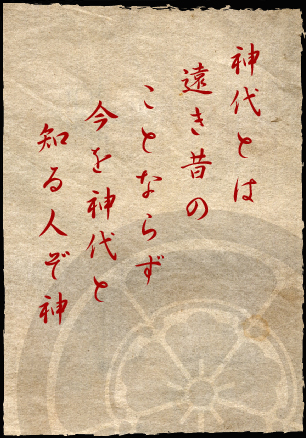 神代とは
遠き昔の
ことならず
今を神代と
知る人ぞ神